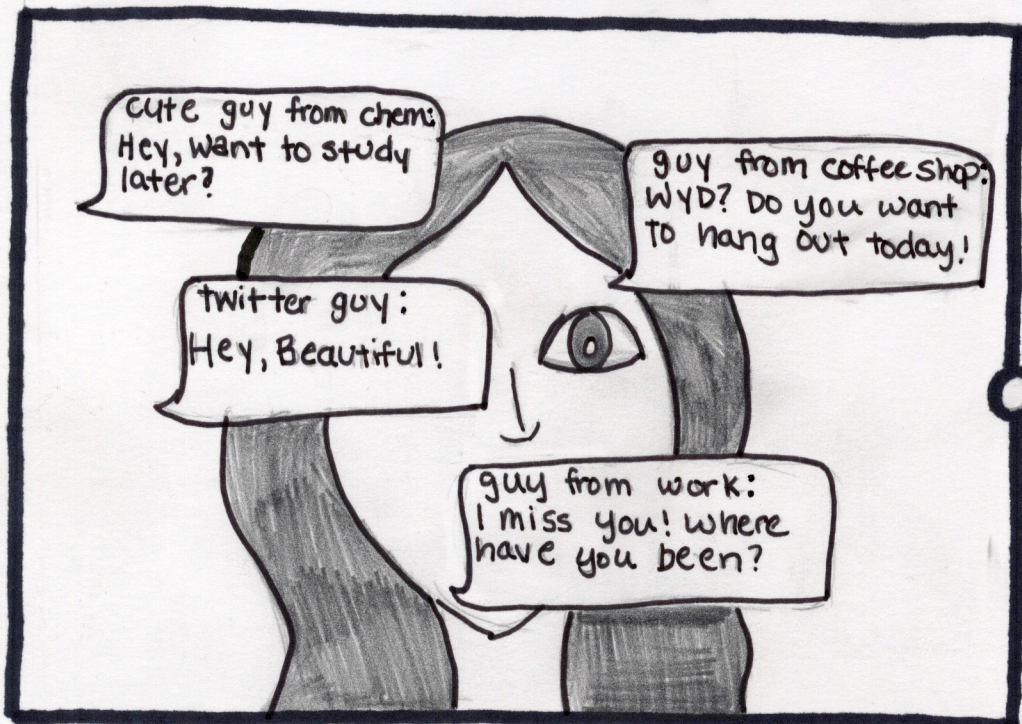 cute guy from chem:
Hey, want to study
later?
guy from coffee shop:
WYD? Do you want
to hang out today!
twitter guy:
Hey, Beautiful!
guy from work:
I miss you! where
have you been?